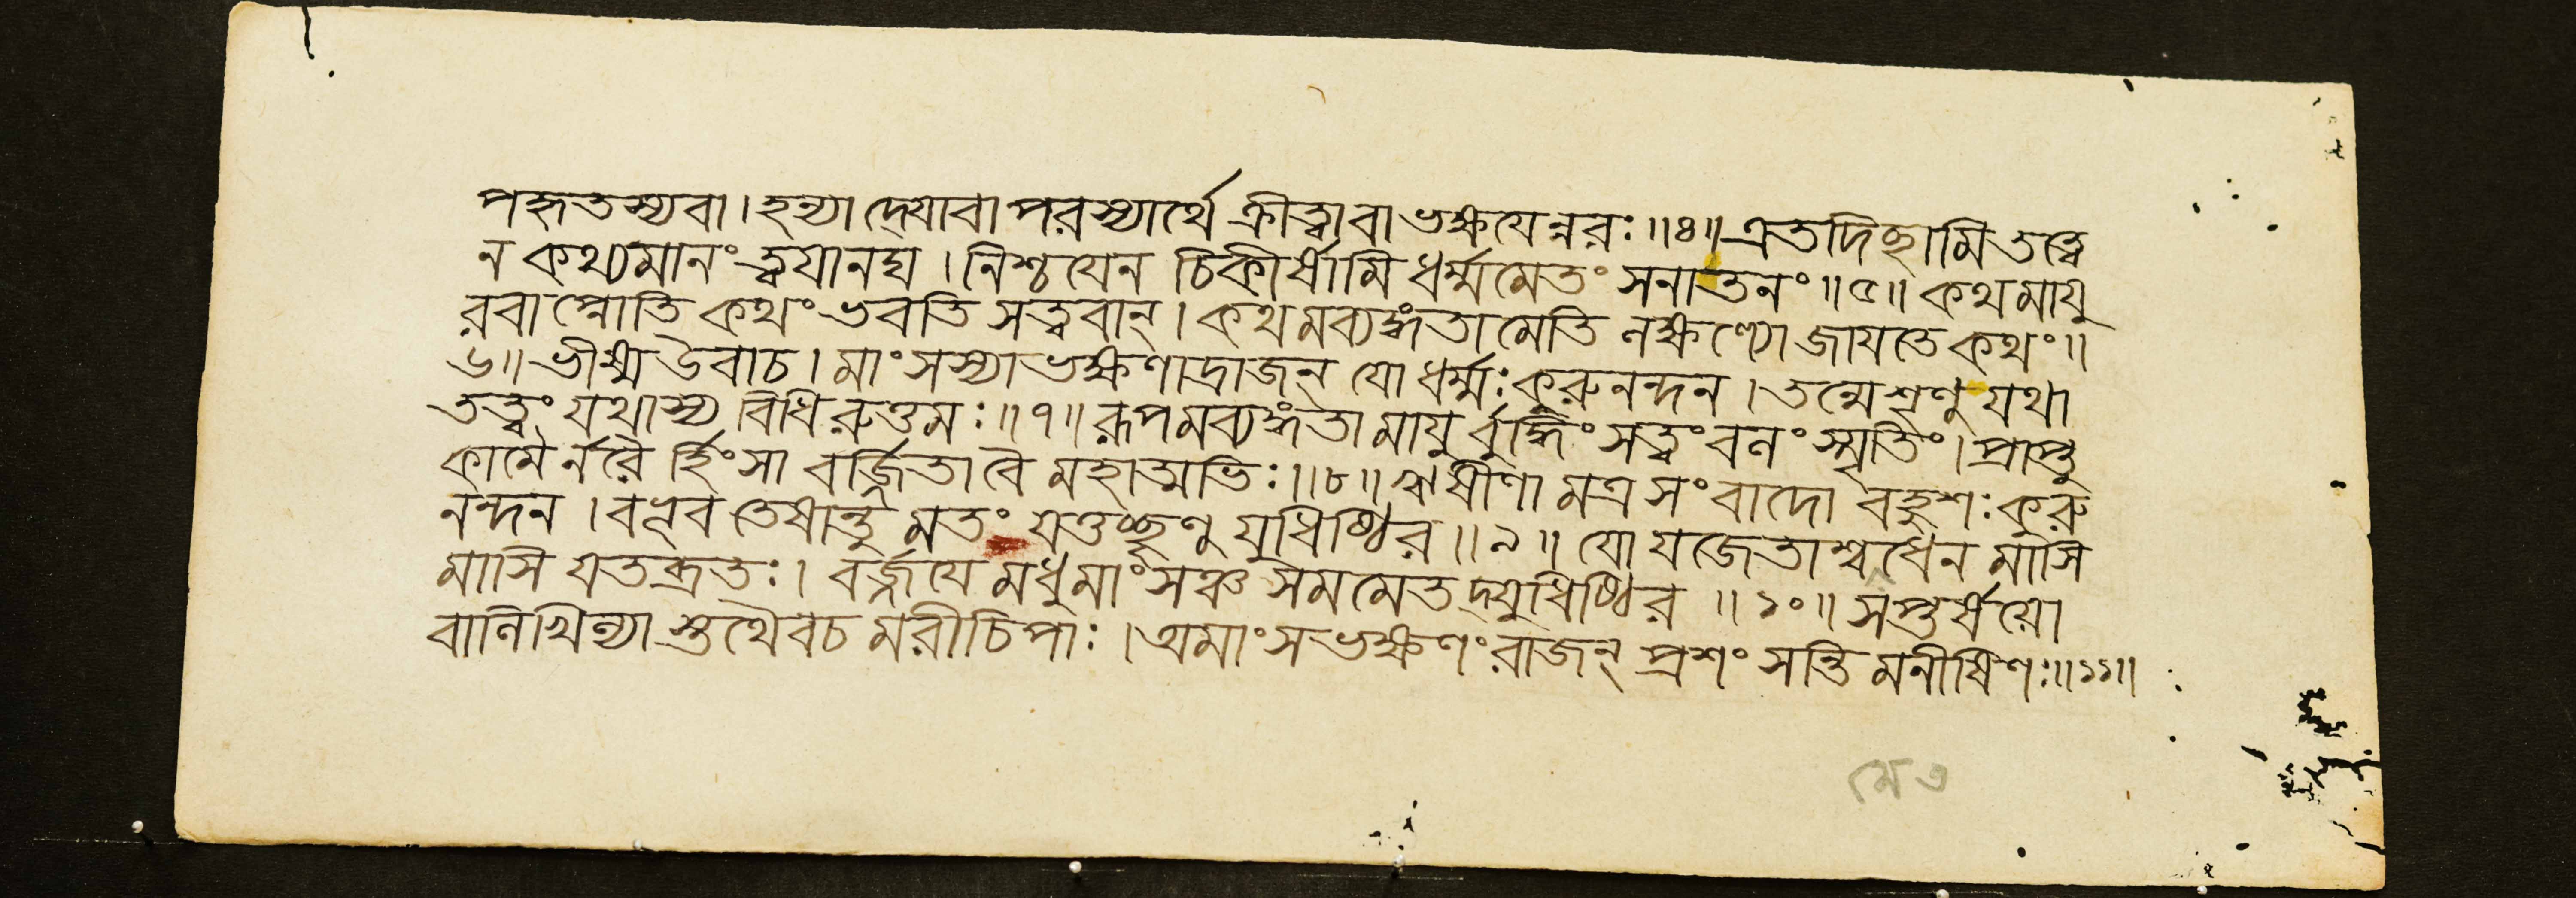 পহৃতস্যবা। হন্যাদ্দেযাবা পরস্যার্থে ক্রীত্বাবা ভক্ষযেন্নরঃ॥৪॥ এতদিচ্ছামি তত্ত্বে
ন কথ্যমানং ত্বযানঘ। নিশ্চযেন চিকীর্ষামি ধর্ম্মমেতং সনাতনং॥৫॥ কথমাযু
রবাপ্নোতি কথং ভবতি সত্ত্ববান্। কথমব্যঙ্গতামেতি লক্ষণ্যো জাযতে কথং॥
৬॥ ভীষ্ম উবাচ। মাংসস্যাভক্ষণাদ্রাজন্ যো ধর্ম্মঃ কুরুনন্দন। তন্মে শৃণু যথা
তত্ত্বং যথাস্য বিধিরুত্তমঃ॥৭॥ রূপমব্যঙ্গতামাযুর্বুদ্ধিং সত্ত্বং বলং স্মৃতিং। প্রাপ্তু
কামৈর্নরৈর্হিংসা বর্জ্জিতাবৈ মহাত্মভিঃ॥৮॥ ঋষীণামত্র সংবাদো বহুশঃ কুরু
নন্দন। বভূব তেষান্তু মতং যত্তচ্ছৃণু যুধিষ্ঠির॥৯॥ যো যজেতাশ্বধেন মাসি
মাসি যতব্রতঃ। বর্জ্জযে মধুমাংসঞ্চ সমমেতদ্যুধিষ্ঠির॥১০॥ সপ্তর্ষযো
বালিখিল্যাস্তথৈবচ মরীচিপাঃ। অমাংসভক্ষণং রাজন্ প্রশংসন্তি মনীষিণঃ॥১১॥
মেত